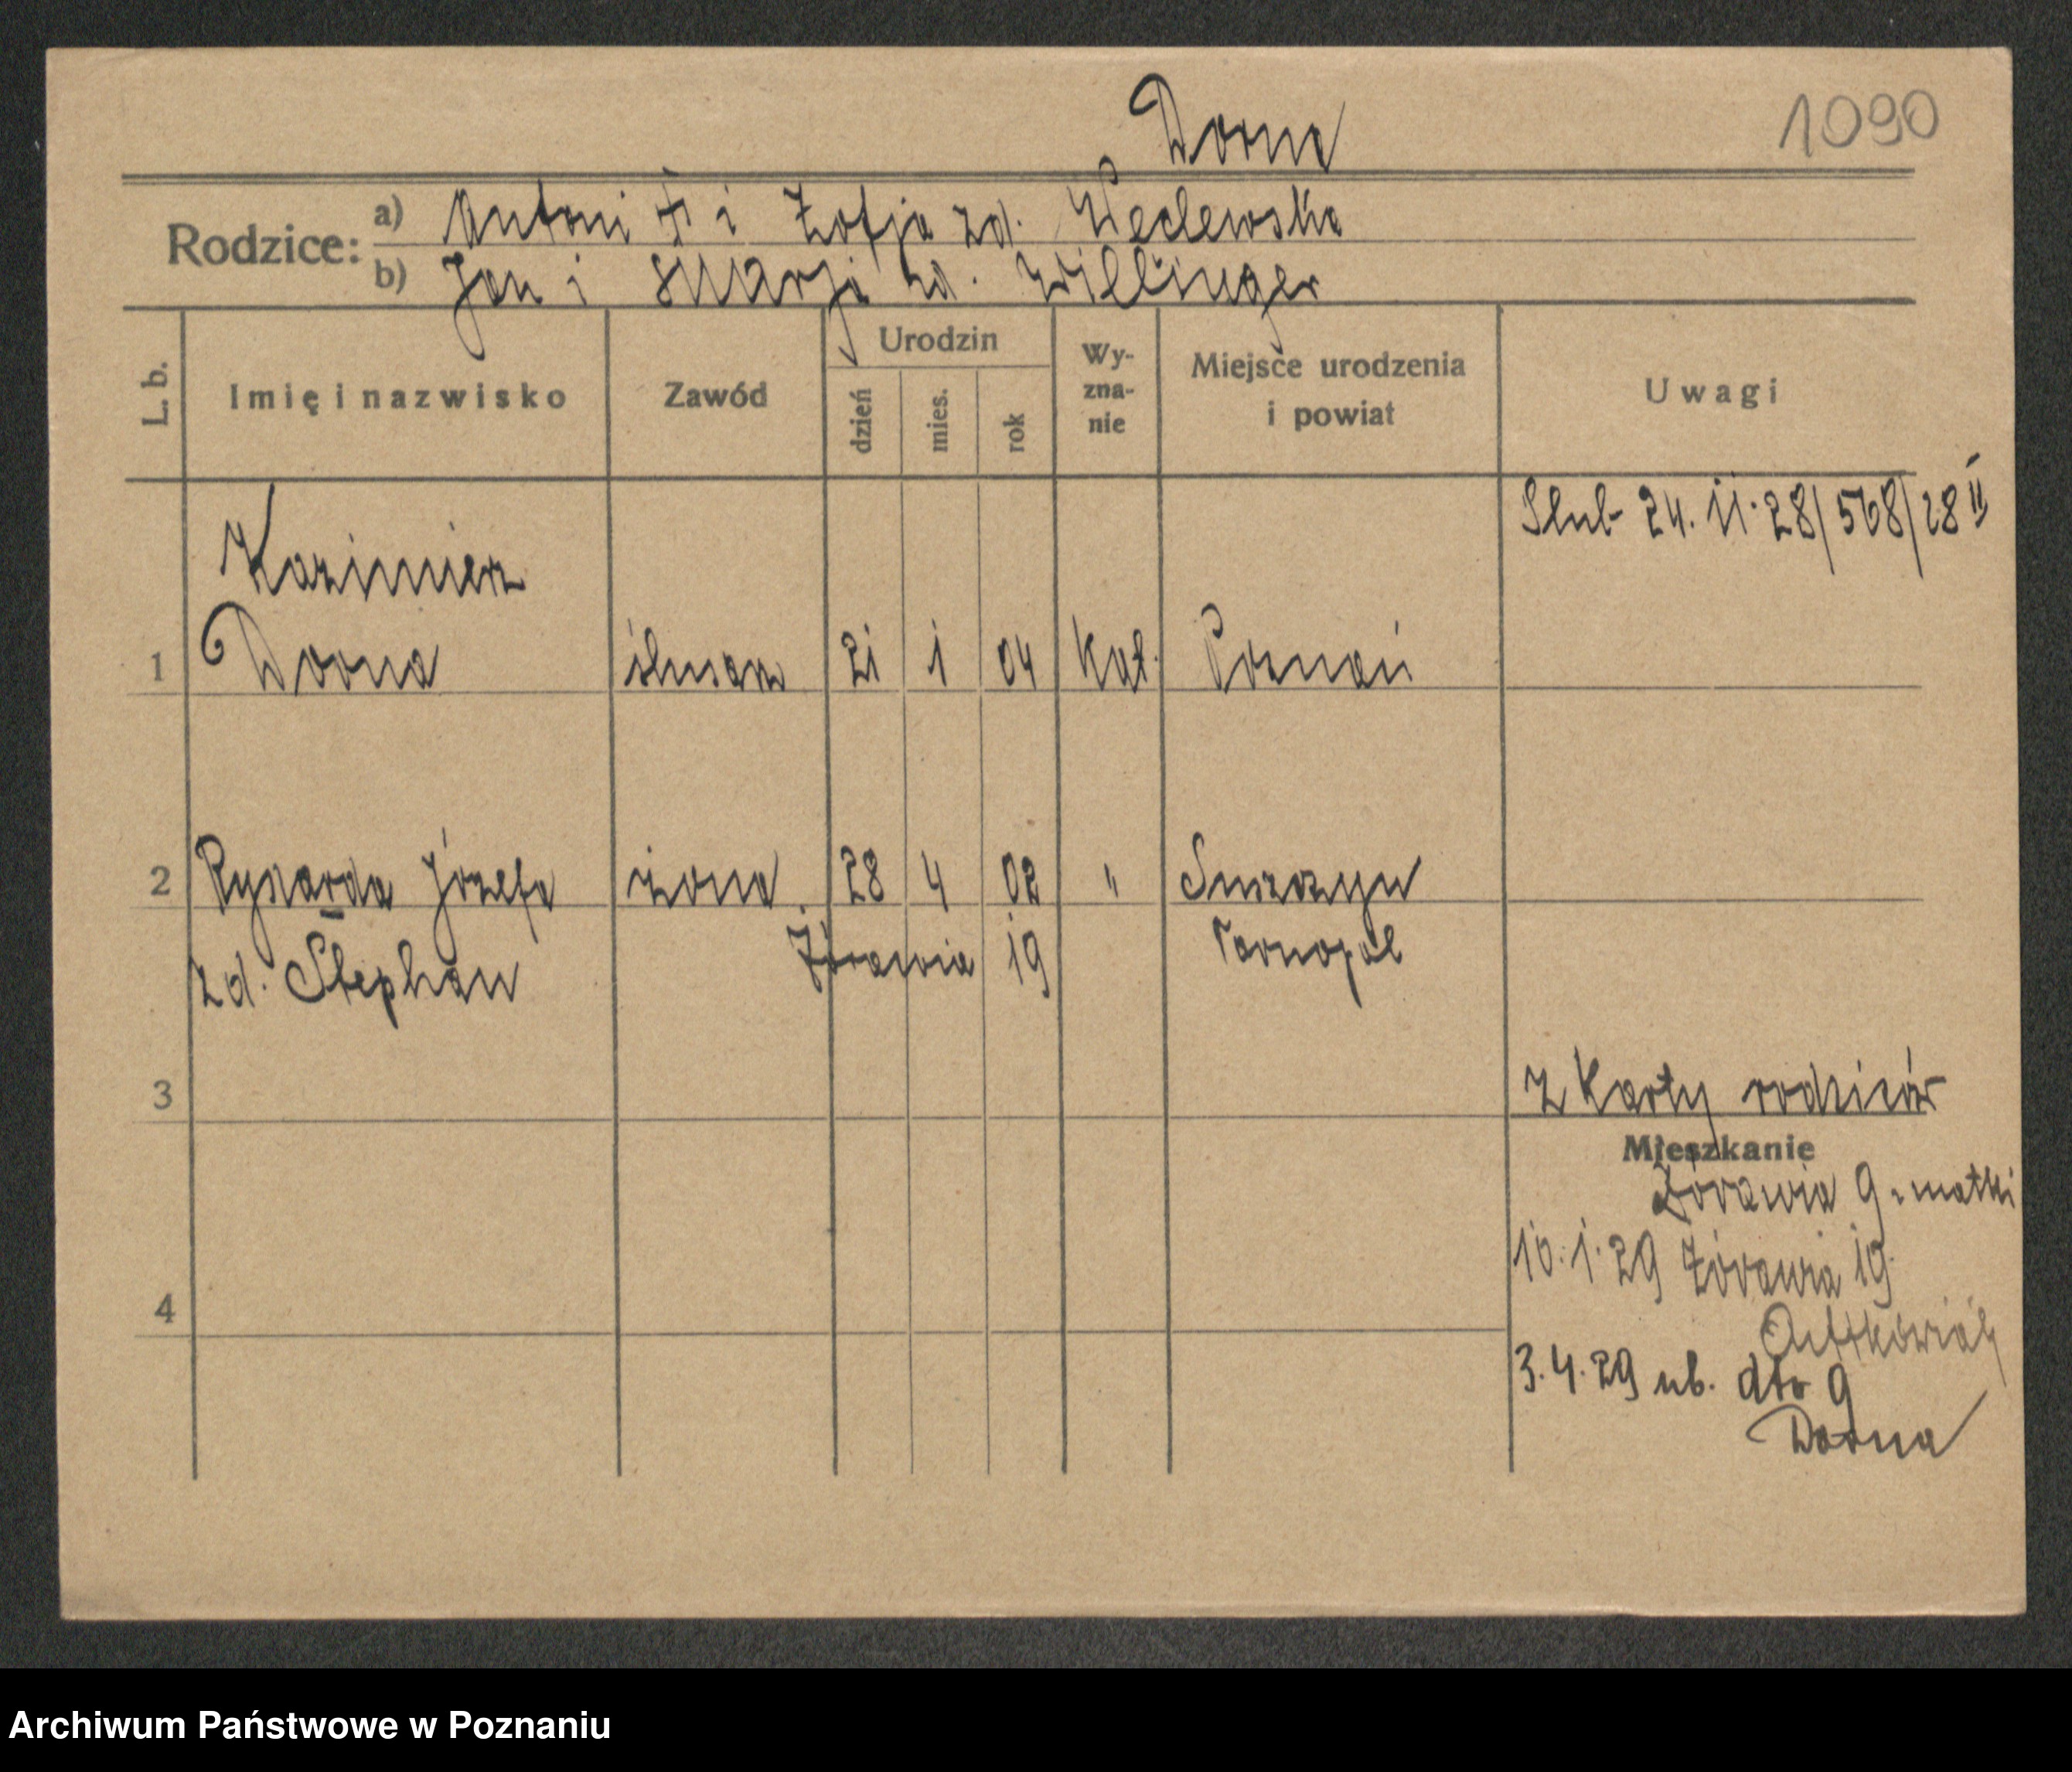 Dorna
1090
Rodzice: a) Antoni † i Zofja zd. Weclewska
b) Jan i Marja zd. Willinger
L. b. Imię i nazwisko Zawód Urodzin dzień mies. rok Wy-zna-nie Miejsce urodzenia i powiat Uwagi
Ślub 24. 11. 28/568/28 II
Kazimierz
1 Dorna ślusarz 21 1 04 kat. Poznań
2 Ryszarda Józefa żona 28 4 02 "
zd. Stephan Żórawia 19 Tarnopol
3 z karty rodziców
Mieszkanie
Żórawia 9 matki
10. 1. 29 Żórawia 19
4
3. 4. 29 ub. dto 9
Dorna
Archiwum Państwowe w Poznaniu